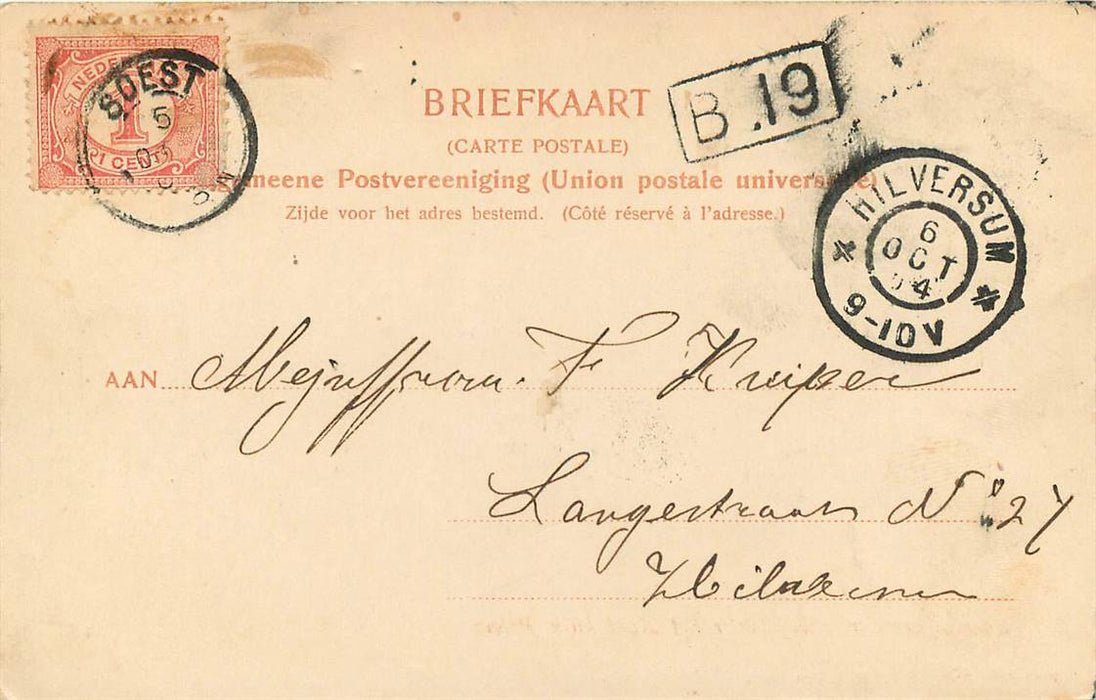 NEDE
SOEST
5
1
1 CENT
BRIEFKAART
(CARTE POSTALE)
meene Postvereeniging (Union postale univers
Zijde voor het adres bestemd. (Côté réservé à l'adresse.)
B.19
HILVERSUM
6
OCT
04
9-10V
AAN Mejuffrouw. F Kuiper
Langestraat No 27
Hilversum